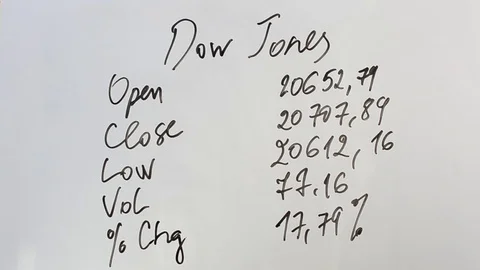 Dow Jones
Open 20652,79
Close 20707,89
Low 20612,16
Vol 77.16
% Chg 17,79%